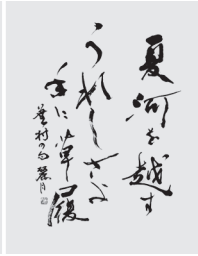 夏河を越す
うれしさよ
手に草履
蕪村の句 麗月